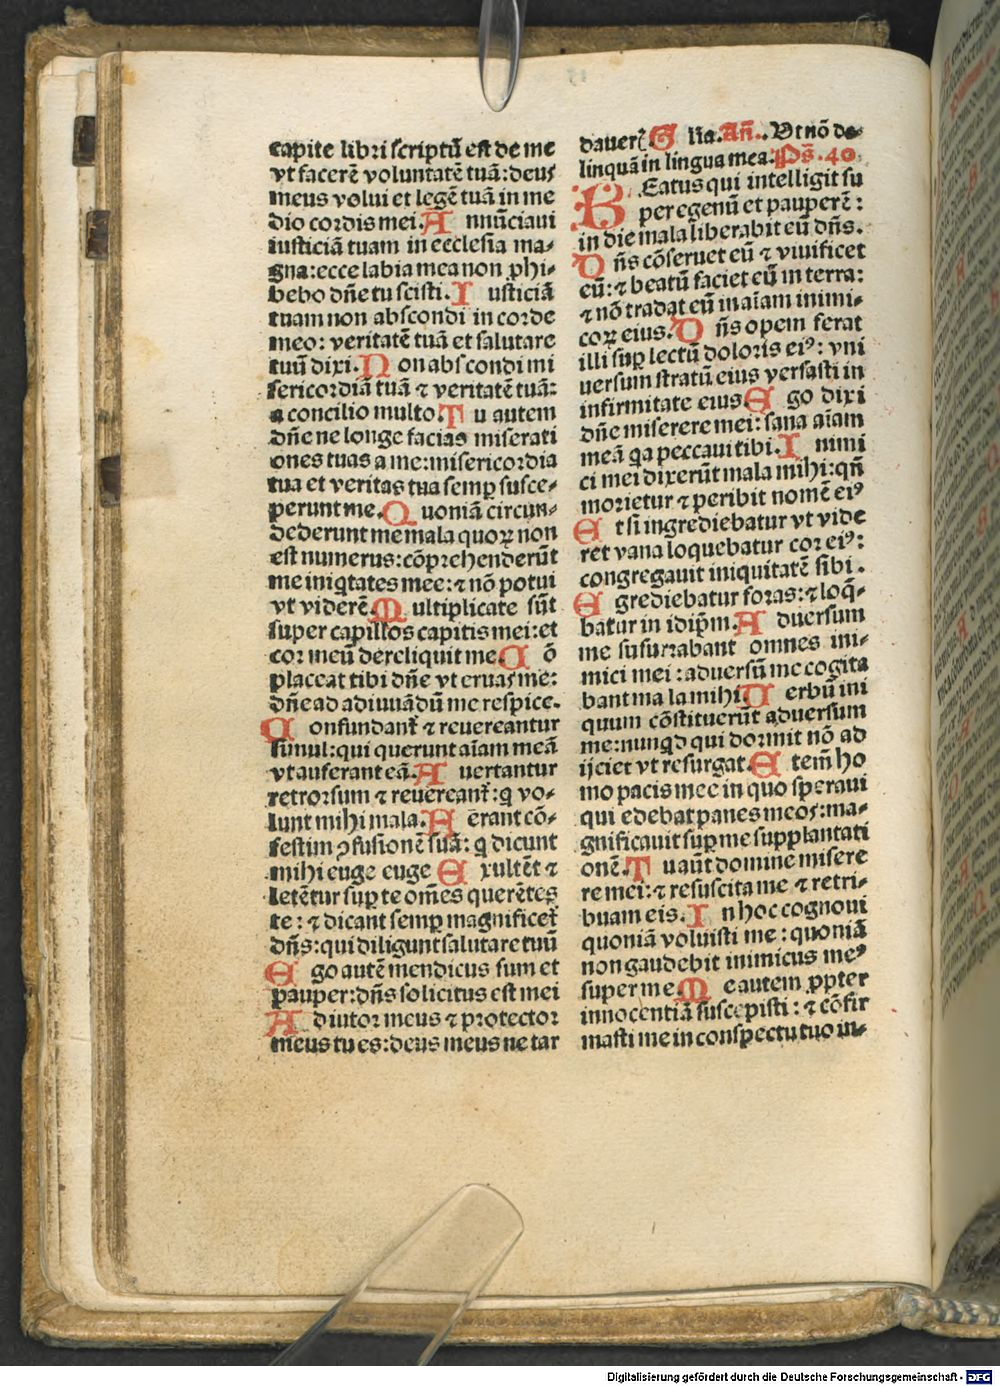 capite libri scriptū est de me
vt facerē voluntatē tuā: deus
meus volui et legē tuā in me
dio cordis mei. A nnūciaui
iusticiā tuam in ecclesia ma-
gna: ecce labia mea non ꝓhi-
bebo dñe tu scisti. I usticiā
tuam non abscondi in corde
meo: veritatē tuā et salutare
tuū dixi. N on abscondi mi
sericordiā tuā ⁊ veritatē tuā:
a concilio multo. T u autem
dñe ne longe facias miserati
ones tuas a me: misericordia
tua et veritas tua semꝑ susce-
perunt me. Q uoniā circun-
dederunt me mala quoꝝ non
est numerus: cōprehenderūt
me iniqtates mee: ⁊ nō potui
vt viderē. M ultiplicate sūt
super capillos capitis mei: et
cor meū dereliquit me. C ō
placeat tibi dñe vt eruas me:
dñe ad adiuuādū me respice.
C onfundant᷑ ⁊ reuereantur
simul: qui querunt aīam meā
vt auferant eā. A uertantur
retrorsum ⁊ reuereant᷑: q vo-
lunt mihi mala. F erant cō-
festim ↄfusionē suā: q dicunt
mihi euge euge E xultēt ⁊
letētur suꝑ te om̄es querētes
te: ⁊ dicant semꝑ magnificet᷑
dñs: qui diligunt salutare tuū
E go autē mendicus sum et
pauper: dñs solicitus est mei
A diutor meus ⁊ protector
meus tu es: deus meus ne tar
dauerꝭ. G lia. Añ. Vt nō de-
linquā in lingua mea. Ps̄. 40
B Eatus qui intelligit su
per egenū et pauperē:
in die mala liberabit eū dñs.
D ñs cōseruet eū ⁊ viuificet
eū: ⁊ beatū faciet eū in terra:
⁊ nō tradat eū in aīam inimi-
coꝝ eius. D ñs opem ferat
illi suꝑ lectū doloris eiꝰ: vni
uersum stratū eius versasti in
infirmitate eius. E go dixi
dñe miserere mei: sana aīam
meā qa peccaui tibi. I nimi
ci mei dixerūt mala mihi: qñ
morietur ⁊ peribit nomē eiꝰ
E t si ingrediebatur vt vide
ret vana loquebatur cor eiꝰ:
congregauit iniquitatē sibi.
E grediebatur foras: ⁊ loq̄-
batur in idip̄m. A duersum
me susurrabant omnes ini-
mici mei: aduersū me cogita
bant mala mihi. V erbū ini
quum cōstituerūt aduersum
me: nunqd qui dormit nō ad
ijciet vt resurgat. E tem̄ ho
mo pacis mee in quo speraui
qui edebat panes meos: ma-
gnificauit suꝑ me supplantati
onē. T u aūt domine misere
re mei: ⁊ resuscita me ⁊ retri-
buam eis. I n hoc cognoui
quoniā voluisti me: quoniā
non gaudebit inimicus meꝰ
super me. M e autem ꝓpter
innocentiā suscepisti: ⁊ cōfir
masti me in conspectu tuo in-
Digitalisierung gefördert durch die Deutsche Forschungsgemeinschaft - DFG